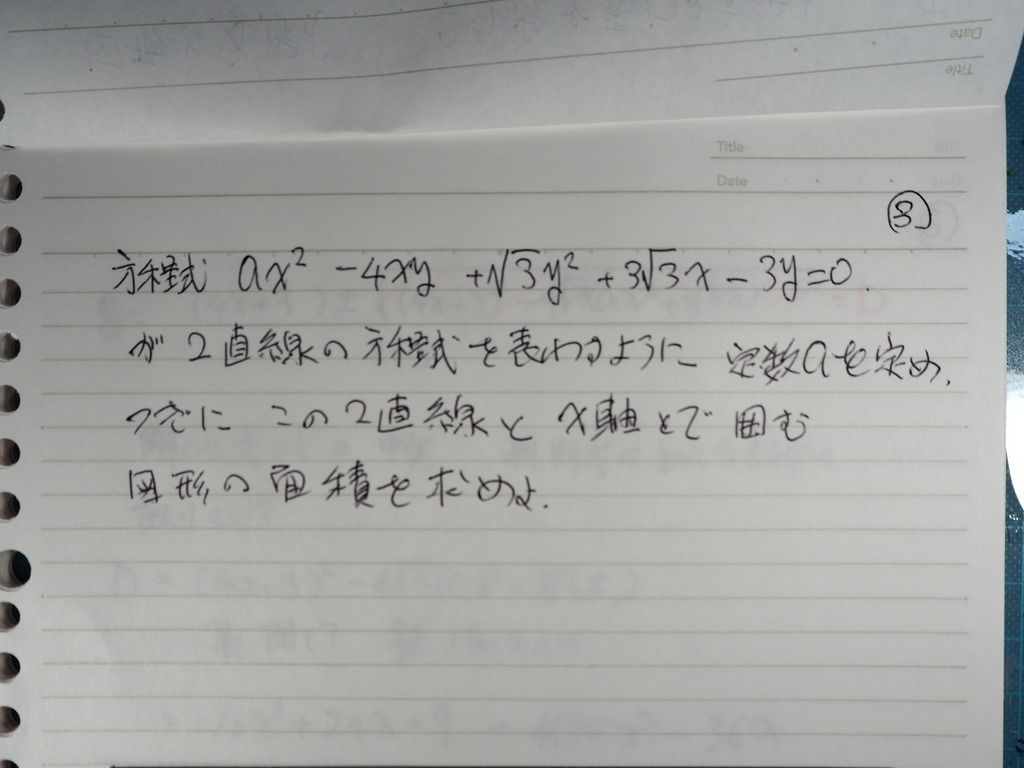 Date
Title
Title
Date
⑧
方程式 ax² -4xy +√3y² +3√3x -3y=0.
が2直線の方程式を表わすように 定数aを定め,
つぎに この2直線と x軸とで 囲む
図形の面積を求めよ.